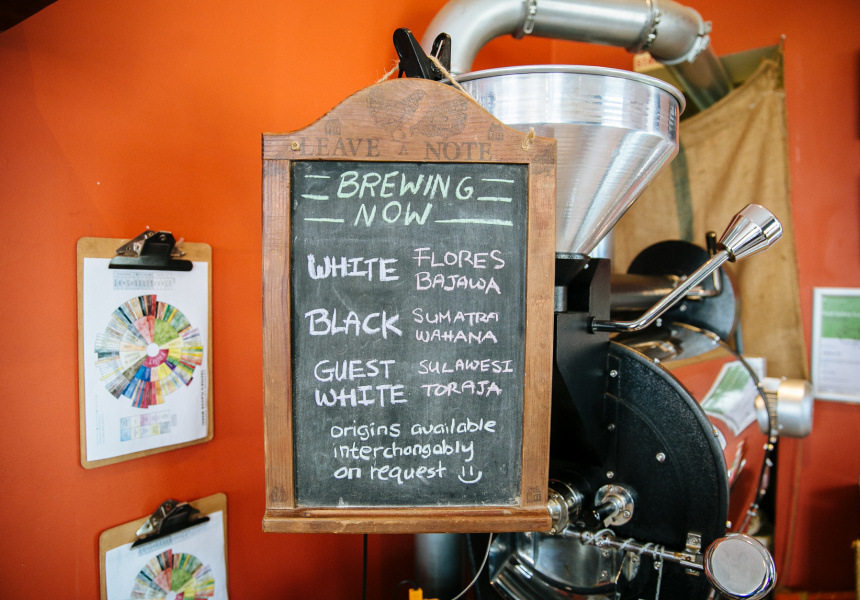 LEAVE A NOTE
BREWING
NOW
WHITE FLORES
BAJAWA
BLACK SUMATRA
WAHANA
GUEST SULAWESI
WHITE TORAJA
origins available
interchangably
on request